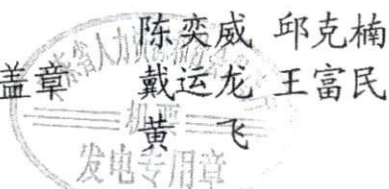 陈奕威 邱克楠
盖章 戴运龙 王富民
黄飞
发电专用章